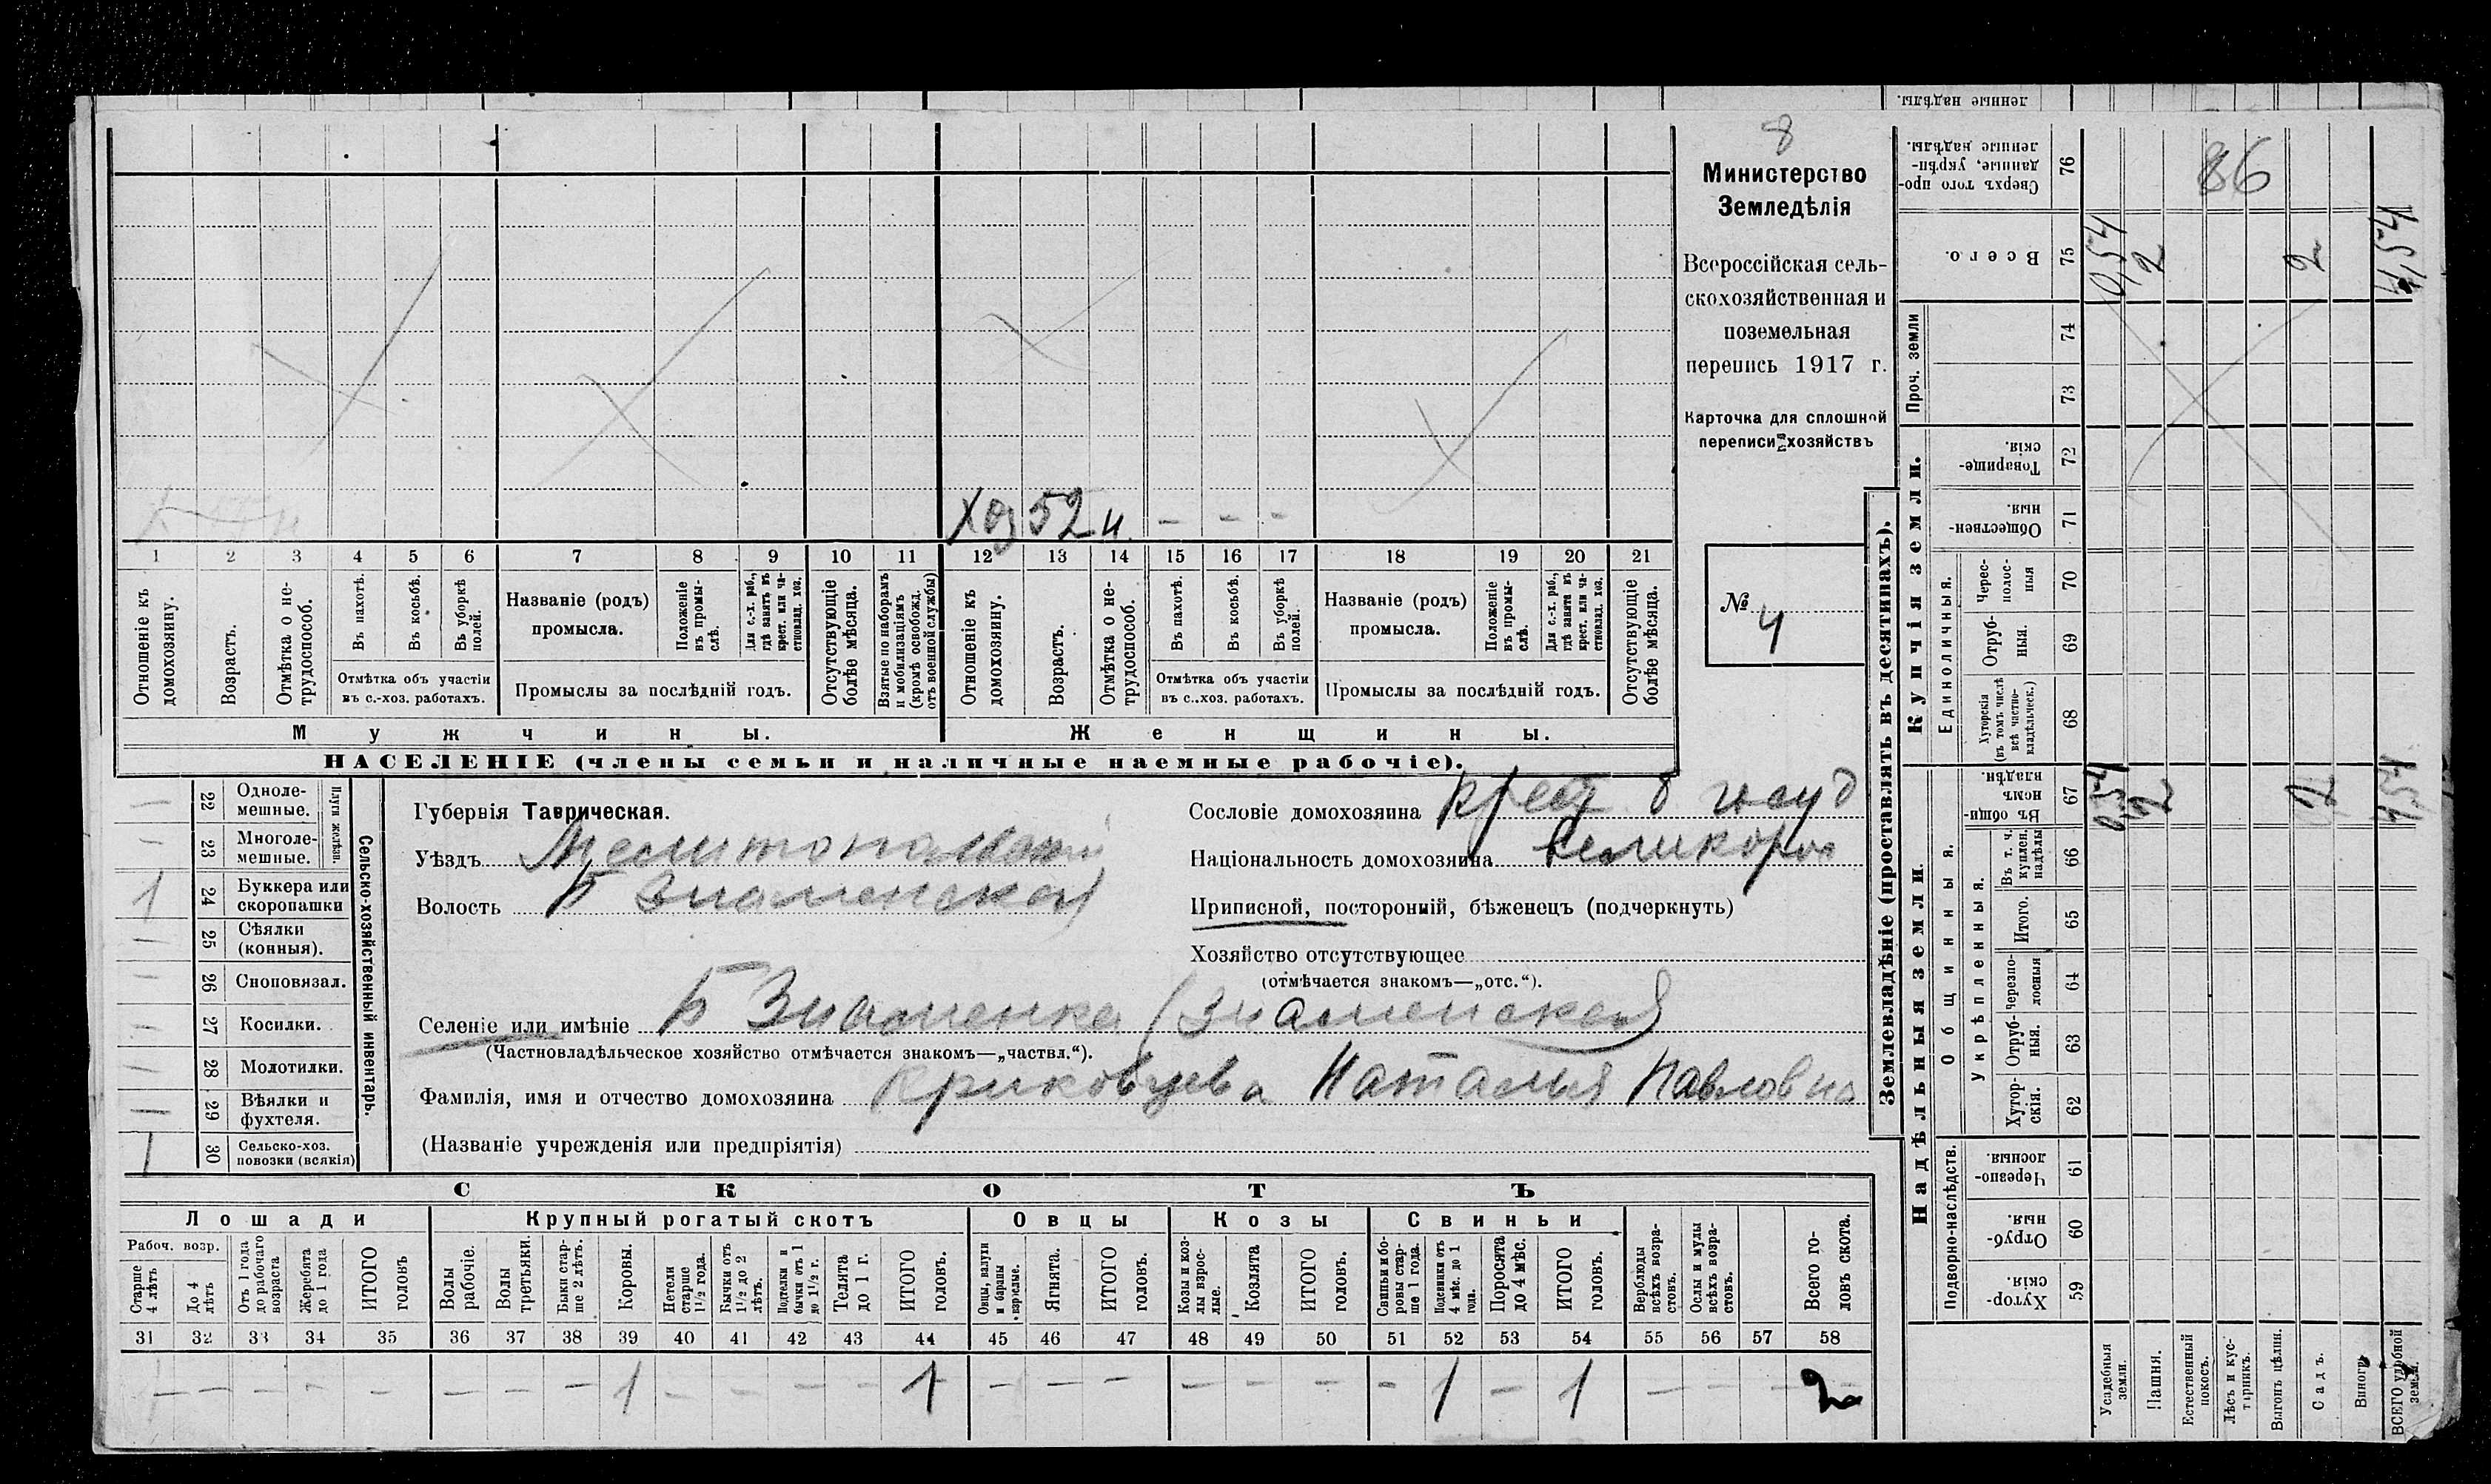 8
Министерство
Земледѣлія
Всероссійская сель-
скохозяйственная и
поземельная
перепись 1917 г.
Карточка для сплошной
переписи хозяйствъ
№ 4
Хоз 52 н. - - -
1 2 3 4 5 6 7 8 9 10 11 12 13 14 15 16 17 18 19 20 21
Отношеніе къ домохозяину.
Возрастъ.
Отмѣтка о не-трудоспособ.
Въ пахотѣ.
Въ косьбѣ.
Въ уборкѣ полей.
Отмѣтка объ участіи въ с.-хоз. работахъ.
Названіе (родъ) промысла.
Положеніе въ промы-слѣ.
Для с.-х. раб., гдѣ занятъ въ крест. или ча-стновлад. хоз.
Промыслы за послѣдній годъ.
Отсутствующіе болѣе мѣсяца.
Взятые по наборамъ и мобилизаціямъ (кромѣ освобожд. отъ военной службы)
Отношеніе къ домохозяину.
Возрастъ.
Отмѣтка о не-трудоспособ.
Въ пахотѣ.
Въ косьбѣ.
Въ уборкѣ полей.
Отмѣтка объ участіи въ с..хоз. работахъ.
Названіе (родъ) промысла.
Положеніе въ промы-слѣ.
Для с.-х. раб., гдѣ занята въ крест. или ча-стновлад. хоз.
Промыслы за послѣдній годъ.
Отсутствующіе болѣе мѣсяца.
Мужчины.
Женщины.
НАСЕЛЕНІЕ (члены семьи и наличные наемные рабочіе).
Сельско-хозяйственный инвентарь.
Плуги желѣзн.
— 22 Одноле-мешные.
— 23 Многоле-мешные.
1 24 Буккера или скоропашки
— 25 Сѣялки (конныя).
— 26 Сноповязал.
— 27 Косилки.
— 28 Молотилки.
— 29 Вѣялки и фухтеля.
1 30 Сельско-хоз. повозки (всякія)
Губернія Таврическая.
Уѣздъ Мелитопольский
Волость Б Знаменская
Сословіе домохозяина крест б госуд
Національность домохозяина великорос
Приписной, посторонній, бѣженецъ (подчеркнуть)
Хозяйство отсутствующее
(отмѣчается знакомъ—„отс.“).
Селеніе или имѣніе Б Знаменка (Знаменская)
(Частновладѣльческое хозяйство отмѣчается знакомъ—„частвл.“).
Фамилія, имя и отчество домохозяина Криковцева Наталья Павловна
(Названіе учрежденія или предпріятія)
СКОТЪ
Лошади
Крупный рогатый скотъ
Овцы
Козы
Свиньи
Рабоч. возр.
Старше 4 лѣтъ
До 4 лѣтъ
Отъ 1 года до рабочаго возраста
Жеребята до 1 года
ИТОГО головъ
Волы рабочіе.
Волы третьяки.
Быки стар-ше 2 лѣтъ.
Коровы.
Нетели старше 1½ года.
Бычки отъ 1½ до 2 лѣтъ.
Подтелки и бычки отъ 1 до 1½ г.
Телята до 1 г.
ИТОГО головъ.
Овцы, валухи и бараны взрослые.
Ягнята.
ИТОГО головъ.
Козы и коз-лы взрос-лые.
Козлята
ИТОГО головъ.
Свиньи и бо-ровы стар-ше 1 года.
Подсвинки отъ 4 мѣс. до 1 года.
Поросята до 4 мѣс.
ИТОГО головъ.
Верблюды всѣхъ возра-стовъ.
Ослы и мулы всѣхъ возра-стовъ.
Всего го-ловъ скота.
31 32 33 34 35 36 37 38 39 40 41 42 43 44 45 46 47 48 49 50 51 52 53 54 55 56 57 58
— — — — — — — — 1 — — — — 1 — — — — — — — 1 — 1 — — — 2
Землевладѣніе (проставлять въ десятинахъ).
Надѣльныя земли.
Купчія земли.
Проч. земли
Подворно-наслѣдств.
Общинныя.
Укрѣпленныя.
Единоличныя.
ленные надѣлы.
Сверхъ того про-данные, укрѣп-ленные надѣлы. 76
Всего. 75
74
73
Товарище-скія. 72
Обществен-ныя. 71
Черес-полос-ныя 70
Отруб-ныя. 69
Хуторскія (въ томъ числѣ всѣ частно-владѣльческ.) 68
Въ общин-номъ владѣн. 67
Въ т. ч. куплен. надѣлы 66
Итого. 65
Черезпо-лосныя 64
Отруб-ныя. 63
Хутор-скія. 62
Черезпо-лосныя 61
Отруб-ныя. 60
Хутор-скія. 59
86
0,54 2 2 4,54
0,54 2 2 4,54
Усадебныя земли.
Пашня.
Естественный покосъ.
Лѣсъ и кус-тарникъ.
Выгонъ цѣлин.
Садъ.
Виногр.
ВСЕГО удобной земли.